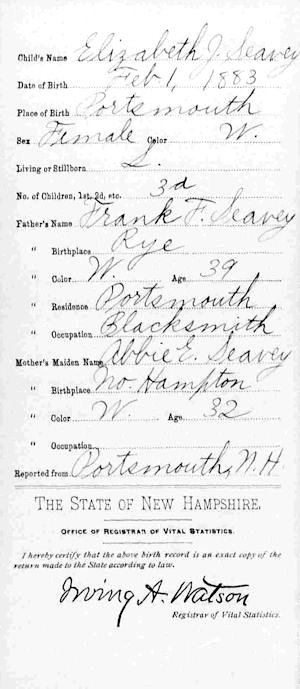 Child's Name Elizabeth J. Seavey
Date of Birth Feb 1, 1883
Place of Birth Portsmouth
Sex Female Color W.
Living or Stillborn L.
No. of Children, 1st, 2d, etc. 3d
Father's Name Frank F. Seavey
" Birthplace Rye
" Color W. Age 39
" Residence Portsmouth
" Occupation Blacksmith
Mother's Maiden Name Abbie E. Seavey
" Birthplace No. Hampton
" Color W. Age 32
" Occupation
Reported from Portsmouth, N.H.
THE STATE OF NEW HAMPSHIRE.
OFFICE OF REGISTRAR OF VITAL STATISTICS.
I hereby certify that the above birth record is an exact copy of the
return made to the State according to law.
Irving A. Watson
Registrar of Vital Statistics.